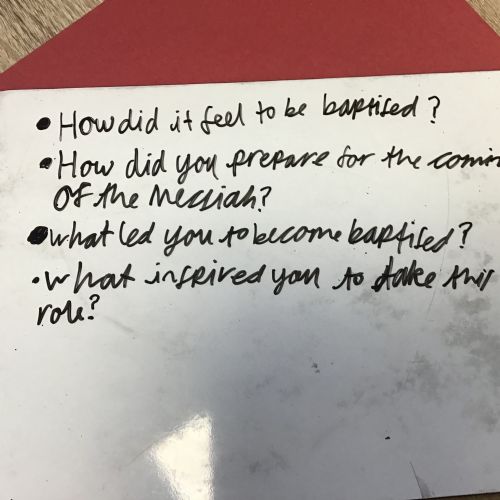 • How did it feel to be baptised?
• How did you prepare for the comin
Of the Messiah?
• what led you to become baptised?
• what inspired you to take this
role?